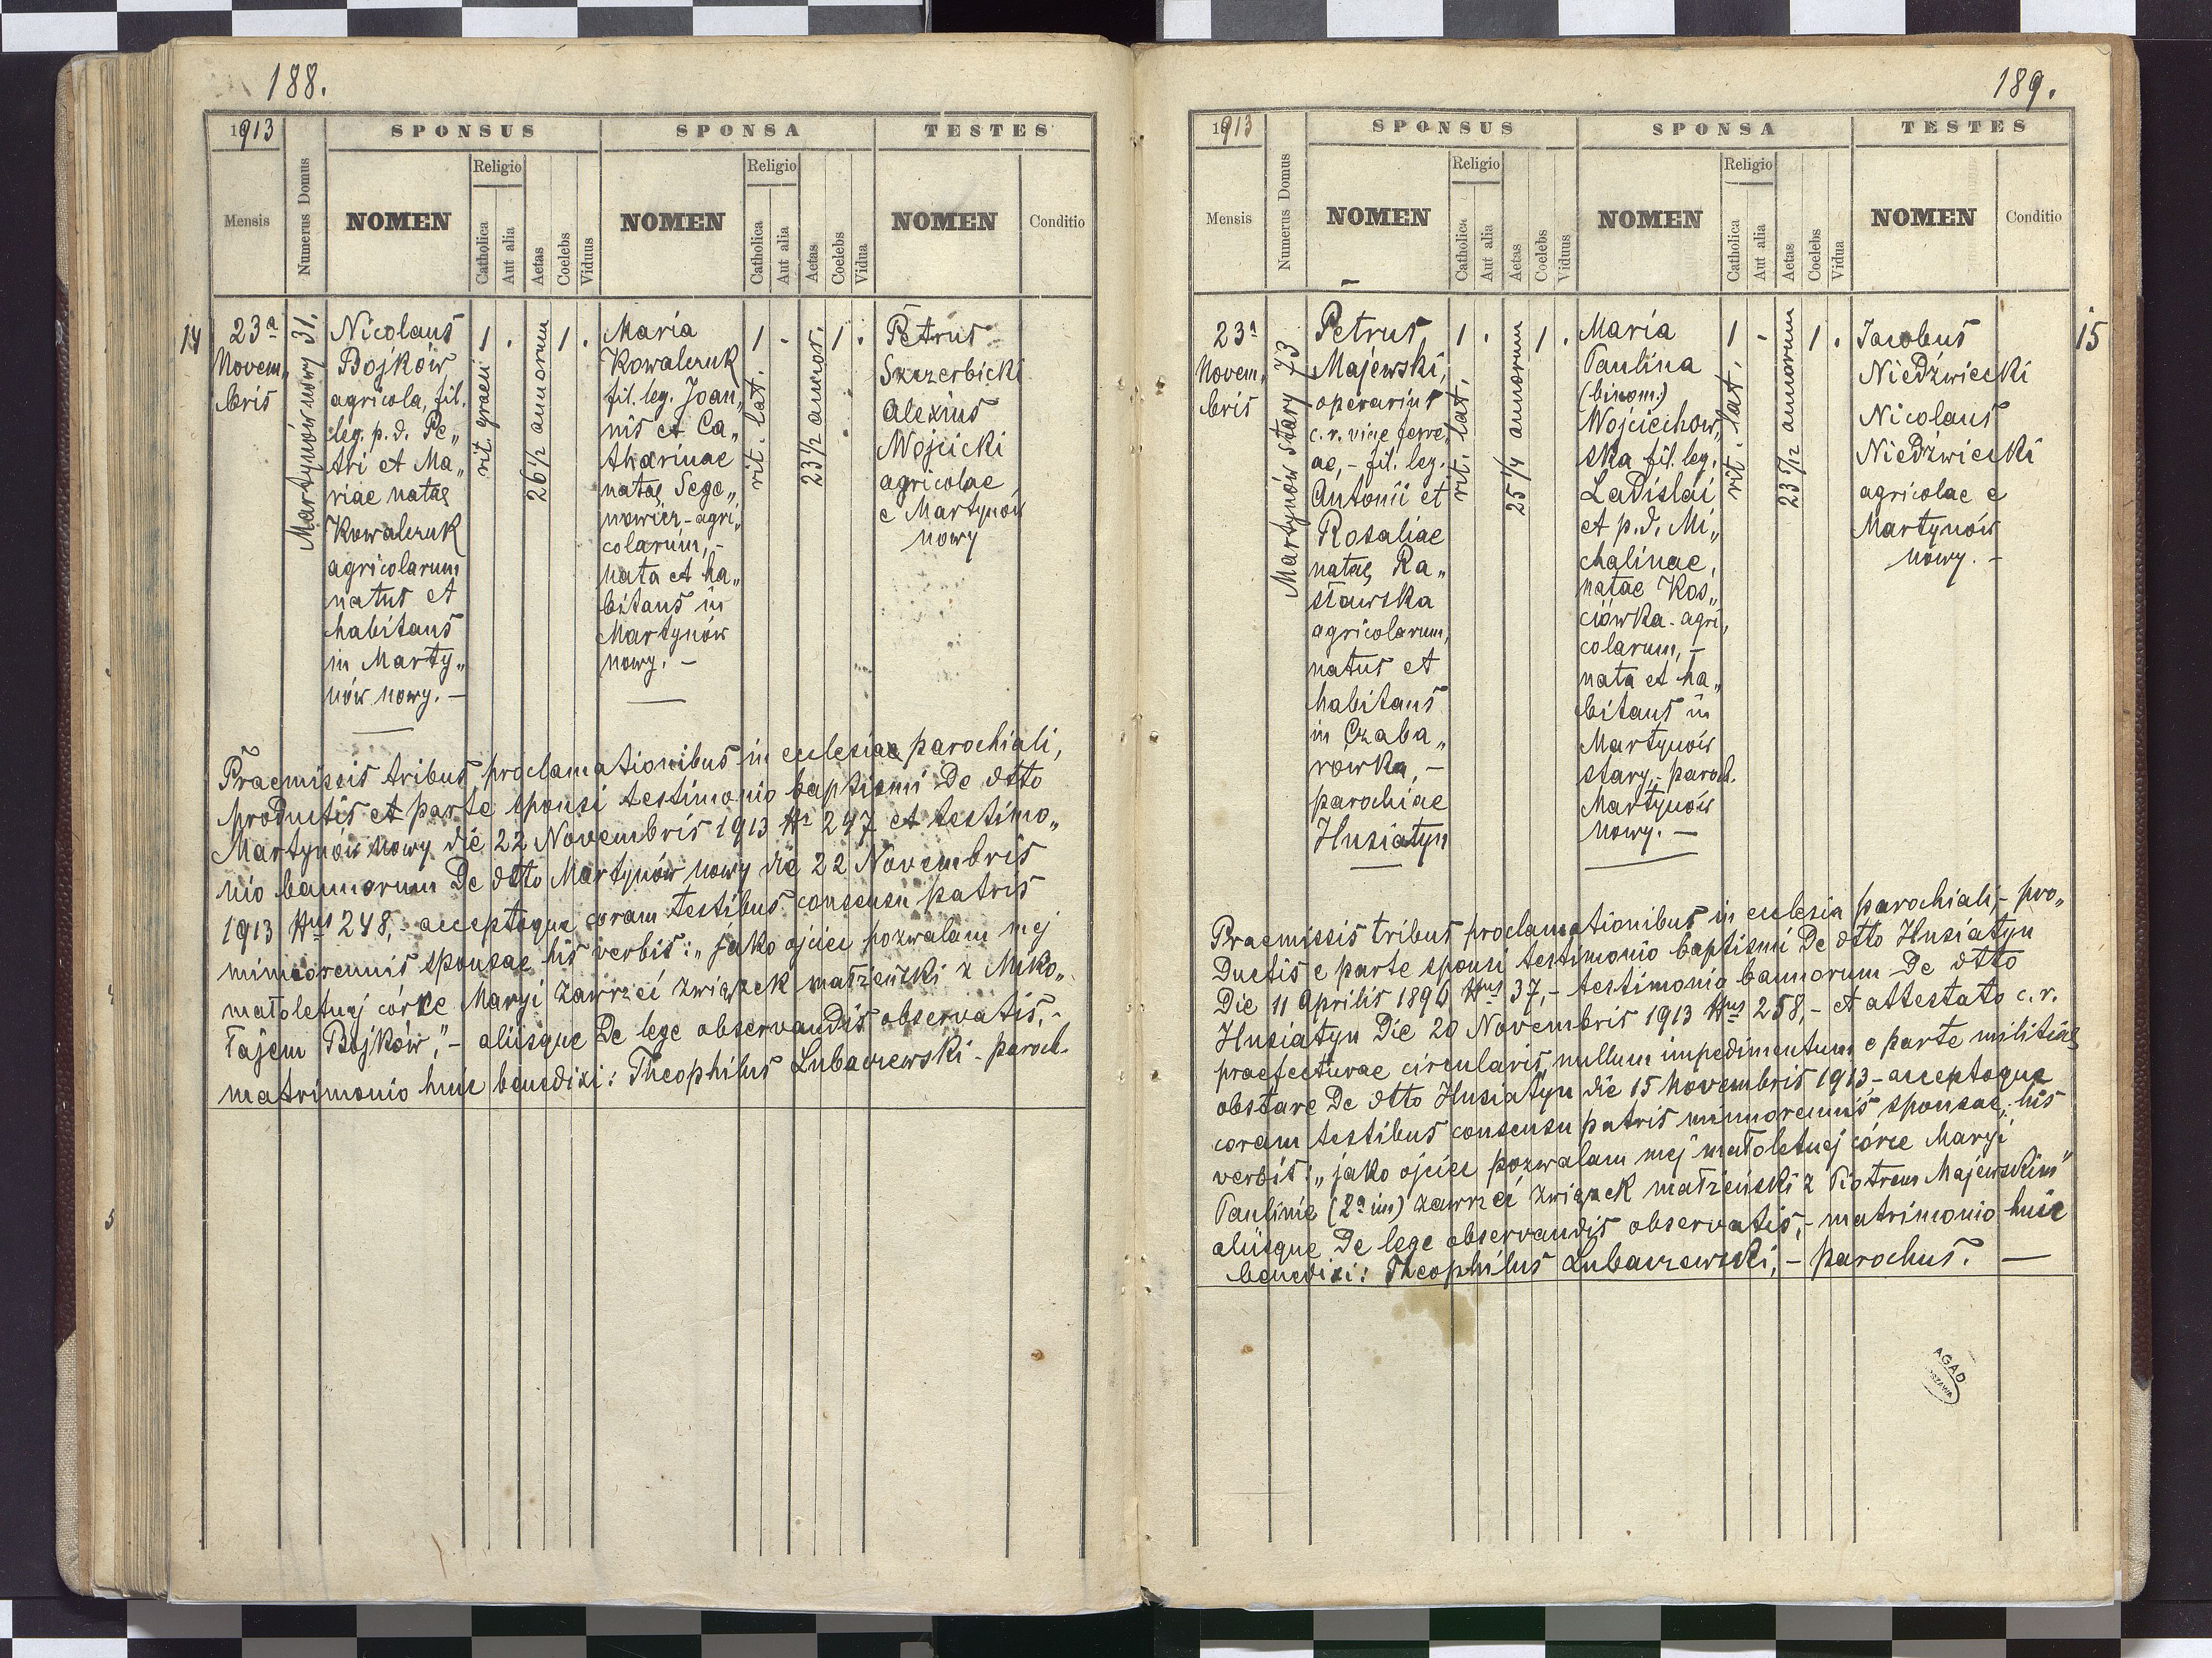 188.
1913
SPONSUS
SPONSA
TESTES
Mensis
Numerus Domus
NOMEN
Religio
Catholica
Aut alia
Aetas
Coelebs
Viduus
NOMEN
Religio
Catholica
Aut alia
Aetas
Coelebs
Vidua
NOMEN
Conditio
14
23a
Novem„
bris
Martynów nowy 31.
Nicolaus
Bojków
agricola, fil.
leg. p. d. Pe„
tri et Ma„
riae natae
Kowalczuk
agricolarum
natus et
habitans
in Marty„
nów nowy. –
1
.
rit. graeci
26 1/2 annorum
1
.
Maria
Kowalczuk
fil. leg. Joan„
nis et Ca„
tharinae
natae Sege„
nowicz – agri„
colarum, –
nata et ha„
bitans in
Martynów
nowy. –
1
.
rit. lat.
23 1/2 annor.
1
.
Petrus
Skrzerbicki
Alexius
Wojcicki
agricolae
e Martynów
nowy
Praemissis tribus proclamationibus in ecclesiae parochiali,
productis et parte sponsi testimonio baptismi de dtto
Martynów nowy die 22 Novembris 1913 No 247 et testimo„
nio bannorum de dtto Martynów nowy die 22 Novembris
1913 Nus 248, – acceptoque coram testibus consensu patris
minorennis sponsae his verbis: „jako ojciec pozwalam mej
małoletnej córce Maryi zawrzeć związek małżeński z Miko„
łajem Bojków", – aliisque de lege observandis observatis, –
matrimonio huic benedixi: Theophilus Lubaczewski – paroch.
189.
1913
SPONSUS
SPONSA
TESTES
Mensis
Numerus Domus
NOMEN
Religio
Catholica
Aut alia
Aetas
Coelebs
Viduus
NOMEN
Religio
Catholica
Aut alia
Aetas
Coelebs
Vidua
NOMEN
Conditio
23a
Novem„
bris
Martynów stary 73
Petrus
Majewski,
operarius
c. r. viae ferre„
ae, – fil. leg.
Antonii et
Rosaliae
natae Ra„
sławska
agricolarum,
natus et
habitans
in Czaba„
rówka, –
parochiae
Husiatyn
1
.
rit. lat.
25 1/4 annorum
1
.
Maria
Paulina
(binom.)
Wojciechow„
ska fil. leg.
Ladislai
et p. d. Mi„
chalinae,
natae Kos„
ciówka – agri„
colarum, –
nata et ha„
bitans in
Martynów
stary, – paroch.
Martynów
nowy. –
1
.
rit. lat.
23 5/12 annorum
1
.
Jacobus
Niedźwiecki
Nicolaus
Niedźwiecki
agricolae e
Martynów
nowy. –
15
Praemissis tribus proclamationibus in ecclesia parochiali, – pro„
ductis e parte sponsi testimonio baptismi de dtto Husiatyn
die 11 Aprilis 1896 Nus 37, – testimonio bannorum de dtto
Husiatyn die 20 Novembris 1913 Nus 258, – et attestato c. r.
praefecturae circularis, nullum impedimentum e parte militiae
obstare de dtto Husiatyn die 15 Novembris 1913, – acceptoque
coram testibus consensu patris minorennis sponsae, his
verbis: „jako ojciec pozwalam mej małoletnej córce Maryi
Paulinie (2a im) zawrzeć związek małżeński z Piotrem Majewskim"
aliisque de lege observandis observatis, – matrimonio huic
benedixi: Theophilus Lubaczewski, – parochus. –
AGAD